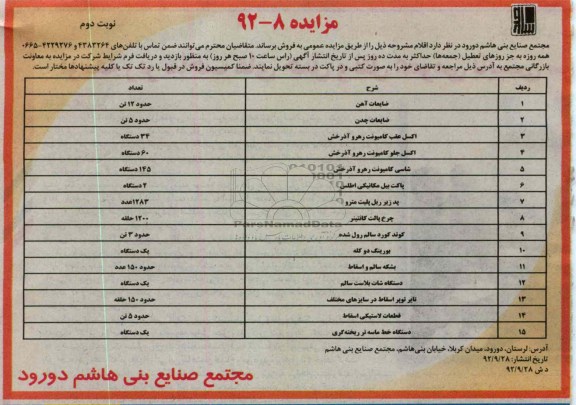 مزایده ۸-۹۲
نوبت دوم
مجتمع صنایع بنی هاشم دورود در نظر دارد اقلام مشروحه ذیل را از طریق مزایده عمومی به فروش برساند. متقاضیان محترم می‌توانند ضمن تماس با تلفن‌های ۴۳۸۳۲۶۴ و ۴۲۲۹۲۷۶-۰۶۶۵
همه روزه به جز روزهای تعطیل (جمعه‌ها) حداکثر به مدت ده روز پس از تاریخ انتشار آگهی (راس ساعت ۱۰ صبح هر روز) به منظور بازدید و دریافت فرم شرایط شرکت در مزایده به معاونت
بازرگانی مجتمع به آدرس ذیل مراجعه و تقاضای خود را به صورت کتبی و در پاکت در بسته تحویل نمایند. ضمنا کمیسیون فروش در قبول یا رد تک تک یا کلیه پیشنهادها مختار است.
ردیف شرح تعداد
۱ ضایعات آهن حدود ۱۲ تن
۲ ضایعات چدن حدود ۵ تن
۳ اکسل عقب کامیونت رهرو آذرخش ۳۴ دستگاه
۴ اکسل جلو کامیونت رهرو و آذرخش ۶۰ دستگاه
۵ شاسی کامیونت رهرو و آذرخش ۱۴۵ دستگاه
۶ پاکت بیل مکانیکی اطلس ۲ دستگاه
۷ پد زیر ریل پلیت مترو ۱۲۸۳عدد
۸ چرخ پالت کانتینر ۱۲۰۰ حلقه
۹ کوئد کورد سالم رول شده حدود ۳ تن
۱۰ بورینگ دو کله یک دستگاه
۱۱ بشکه سالم و اسقاط حدود ۱۵۰ عدد
۱۲ دستگاه شات بلاست سالم یک دستگاه
۱۳ تایر تویر اسقاط در سایزهای مختلف حدود ۱۵۰ حلقه
۱۴ قطعات لاستیکی اسقاط حدود ۵ تن
۱۵ دستگاه خط ماسه تر ریخته‌گری یک دستگاه
ParsNamadData
آدرس: لرستان، دورود، میدان کربلا، خیابان بنی‌هاشم، مجتمع صنایع بنی هاشم
تاریخ انتشار: ۹۲/۹/۲۸
د ش ۹۲/۹/۲۸
مجتمع صنایع بنی هاشم دورود